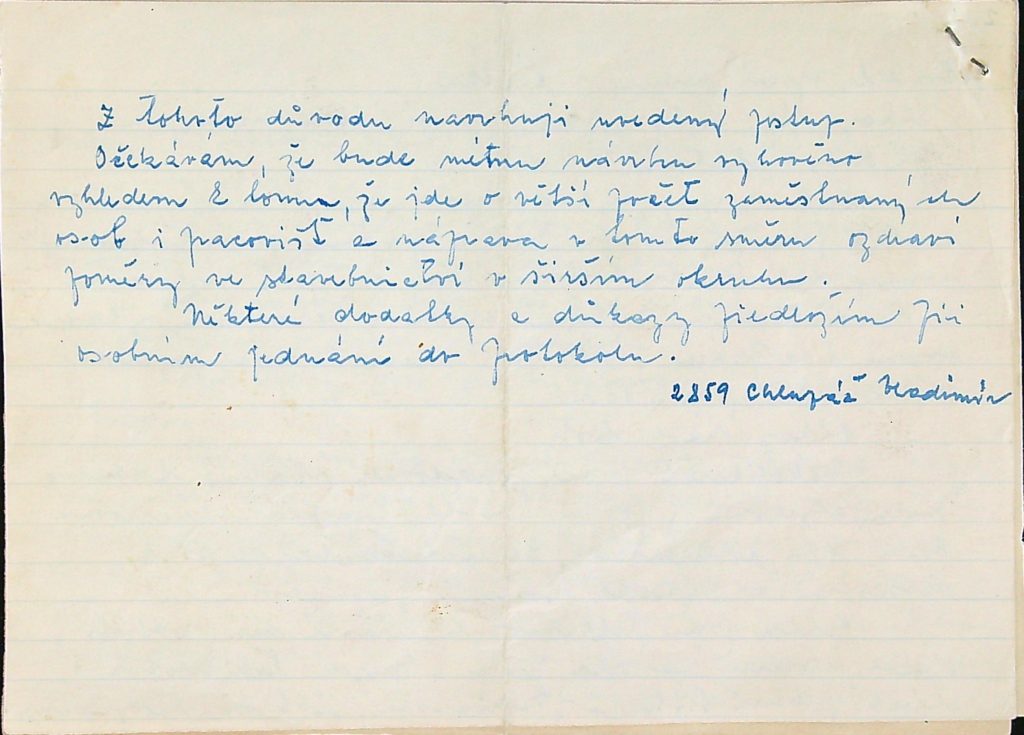 Z tohoto důvodu navrhuji uvedený postup.
Očekávám, že bude mému návrhu vyhověno
vzhledem k tomu, že jde o větší počet zaměstnaných
osob i pracovišť a náprava v tomto směru ozdraví
poměry ve stavebnictví v širším okruhu.
Některé dodatky a důkazy předložím při
osobním jednání do protokolu.
2859 Chlupáč Vladimír